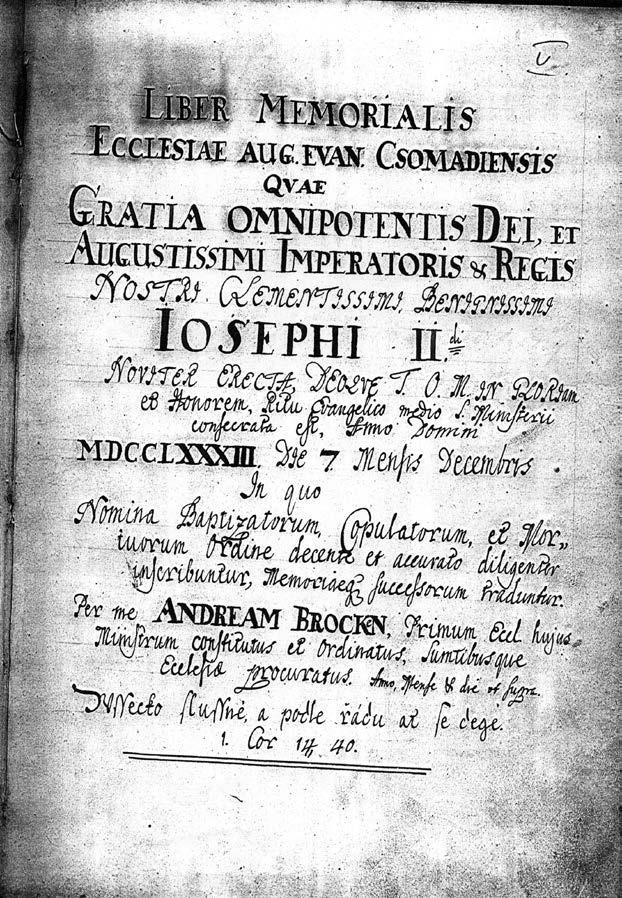 LIBER MEMORIALIS
ECCLESIAE AUG. EVAN. CSOMADIENSIS
QVAE
GRATIA OMNIPOTENTIS DEI, ET
AUGUSTISSIMI IMPERATORIS & REGIS
NOSTRI CLEMENTISSIMI, BENIGNISSIMI
IOSEPHI II.di
NOVITER ERECTA, DEQVE T. O. M. IN GLORIam
et Honorem, Ritu Evangelico medio S. Ministerii
consecrata est, Anno Domini
MDCCLXXXIII. Die 7 Mensis Decembris.
In quo
Nomina Baptizatorum, Copulatorum, et Mor„
tuorum Ordine decente et accurato diligenter
inscribuntur, Memoriaeq successorum traduntur.
Per me ANDREAM BROCKEN, Primum Eccl hujus
Ministrum constitutus et Ordinatus, sumtibusque
Ecclesiæ procuratus. Anno, Mense & die ut supra.
slussně, a podle řádu at se děge.
1. Cor 14, 40.